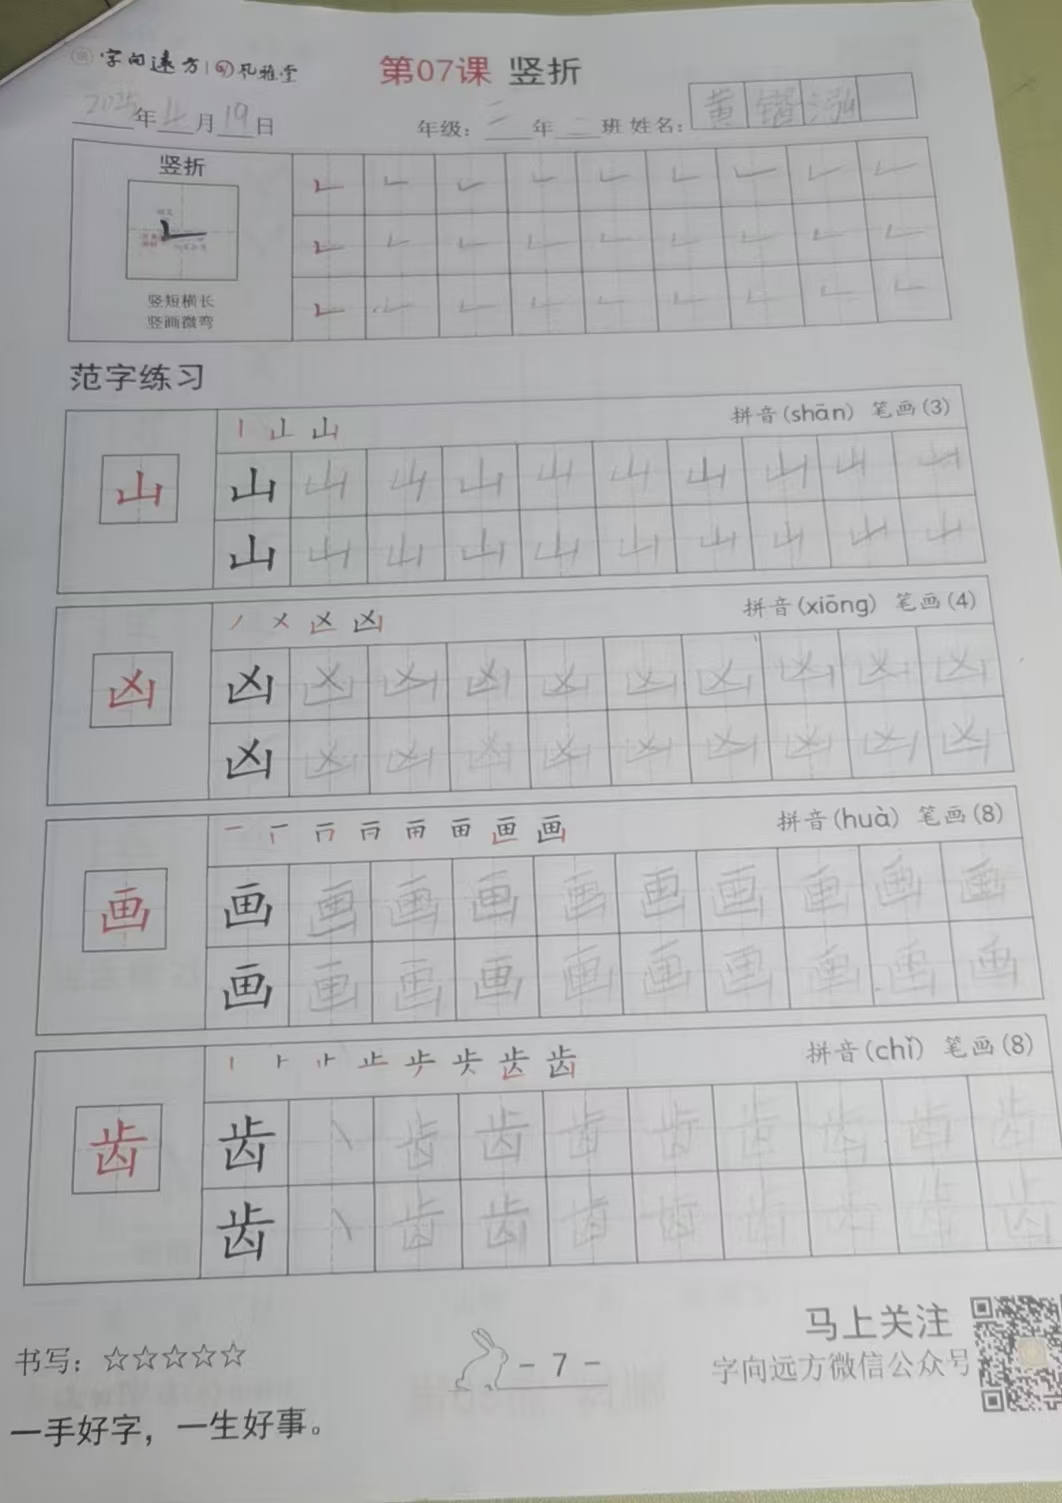 字向远方 风雅堂
第07课 竖折
2025年 月19日
年级：三年二班 姓名：黄 泓
竖折
竖短横长
竖画微弯
范字练习
拼音(shān) 笔画(3)
山 山 山 山 山 山 山 山 山 山 山
山 山 山 山 山 山 山 山 山 山
拼音(xiōng) 笔画(4)
凶
凶 凶 凶 凶 凶 凶 凶 凶 凶 凶 凶
凶 凶 凶 凶 凶 凶 凶 凶 凶 凶
拼音(huà) 笔画(8)
画
画 画 画 画 画 画 画 画 画 画 画
画 画 画 画 画 画 画 画 画 画
拼音(chǐ) 笔画(8)
齿
齿 齿 齿 齿 齿 齿 齿 齿 齿 齿
齿 齿 齿 齿 齿 齿 齿 齿 齿
马上关注
书写：☆☆☆☆☆
- 7 -
字向远方微信公众号
一手好字，一生好事。